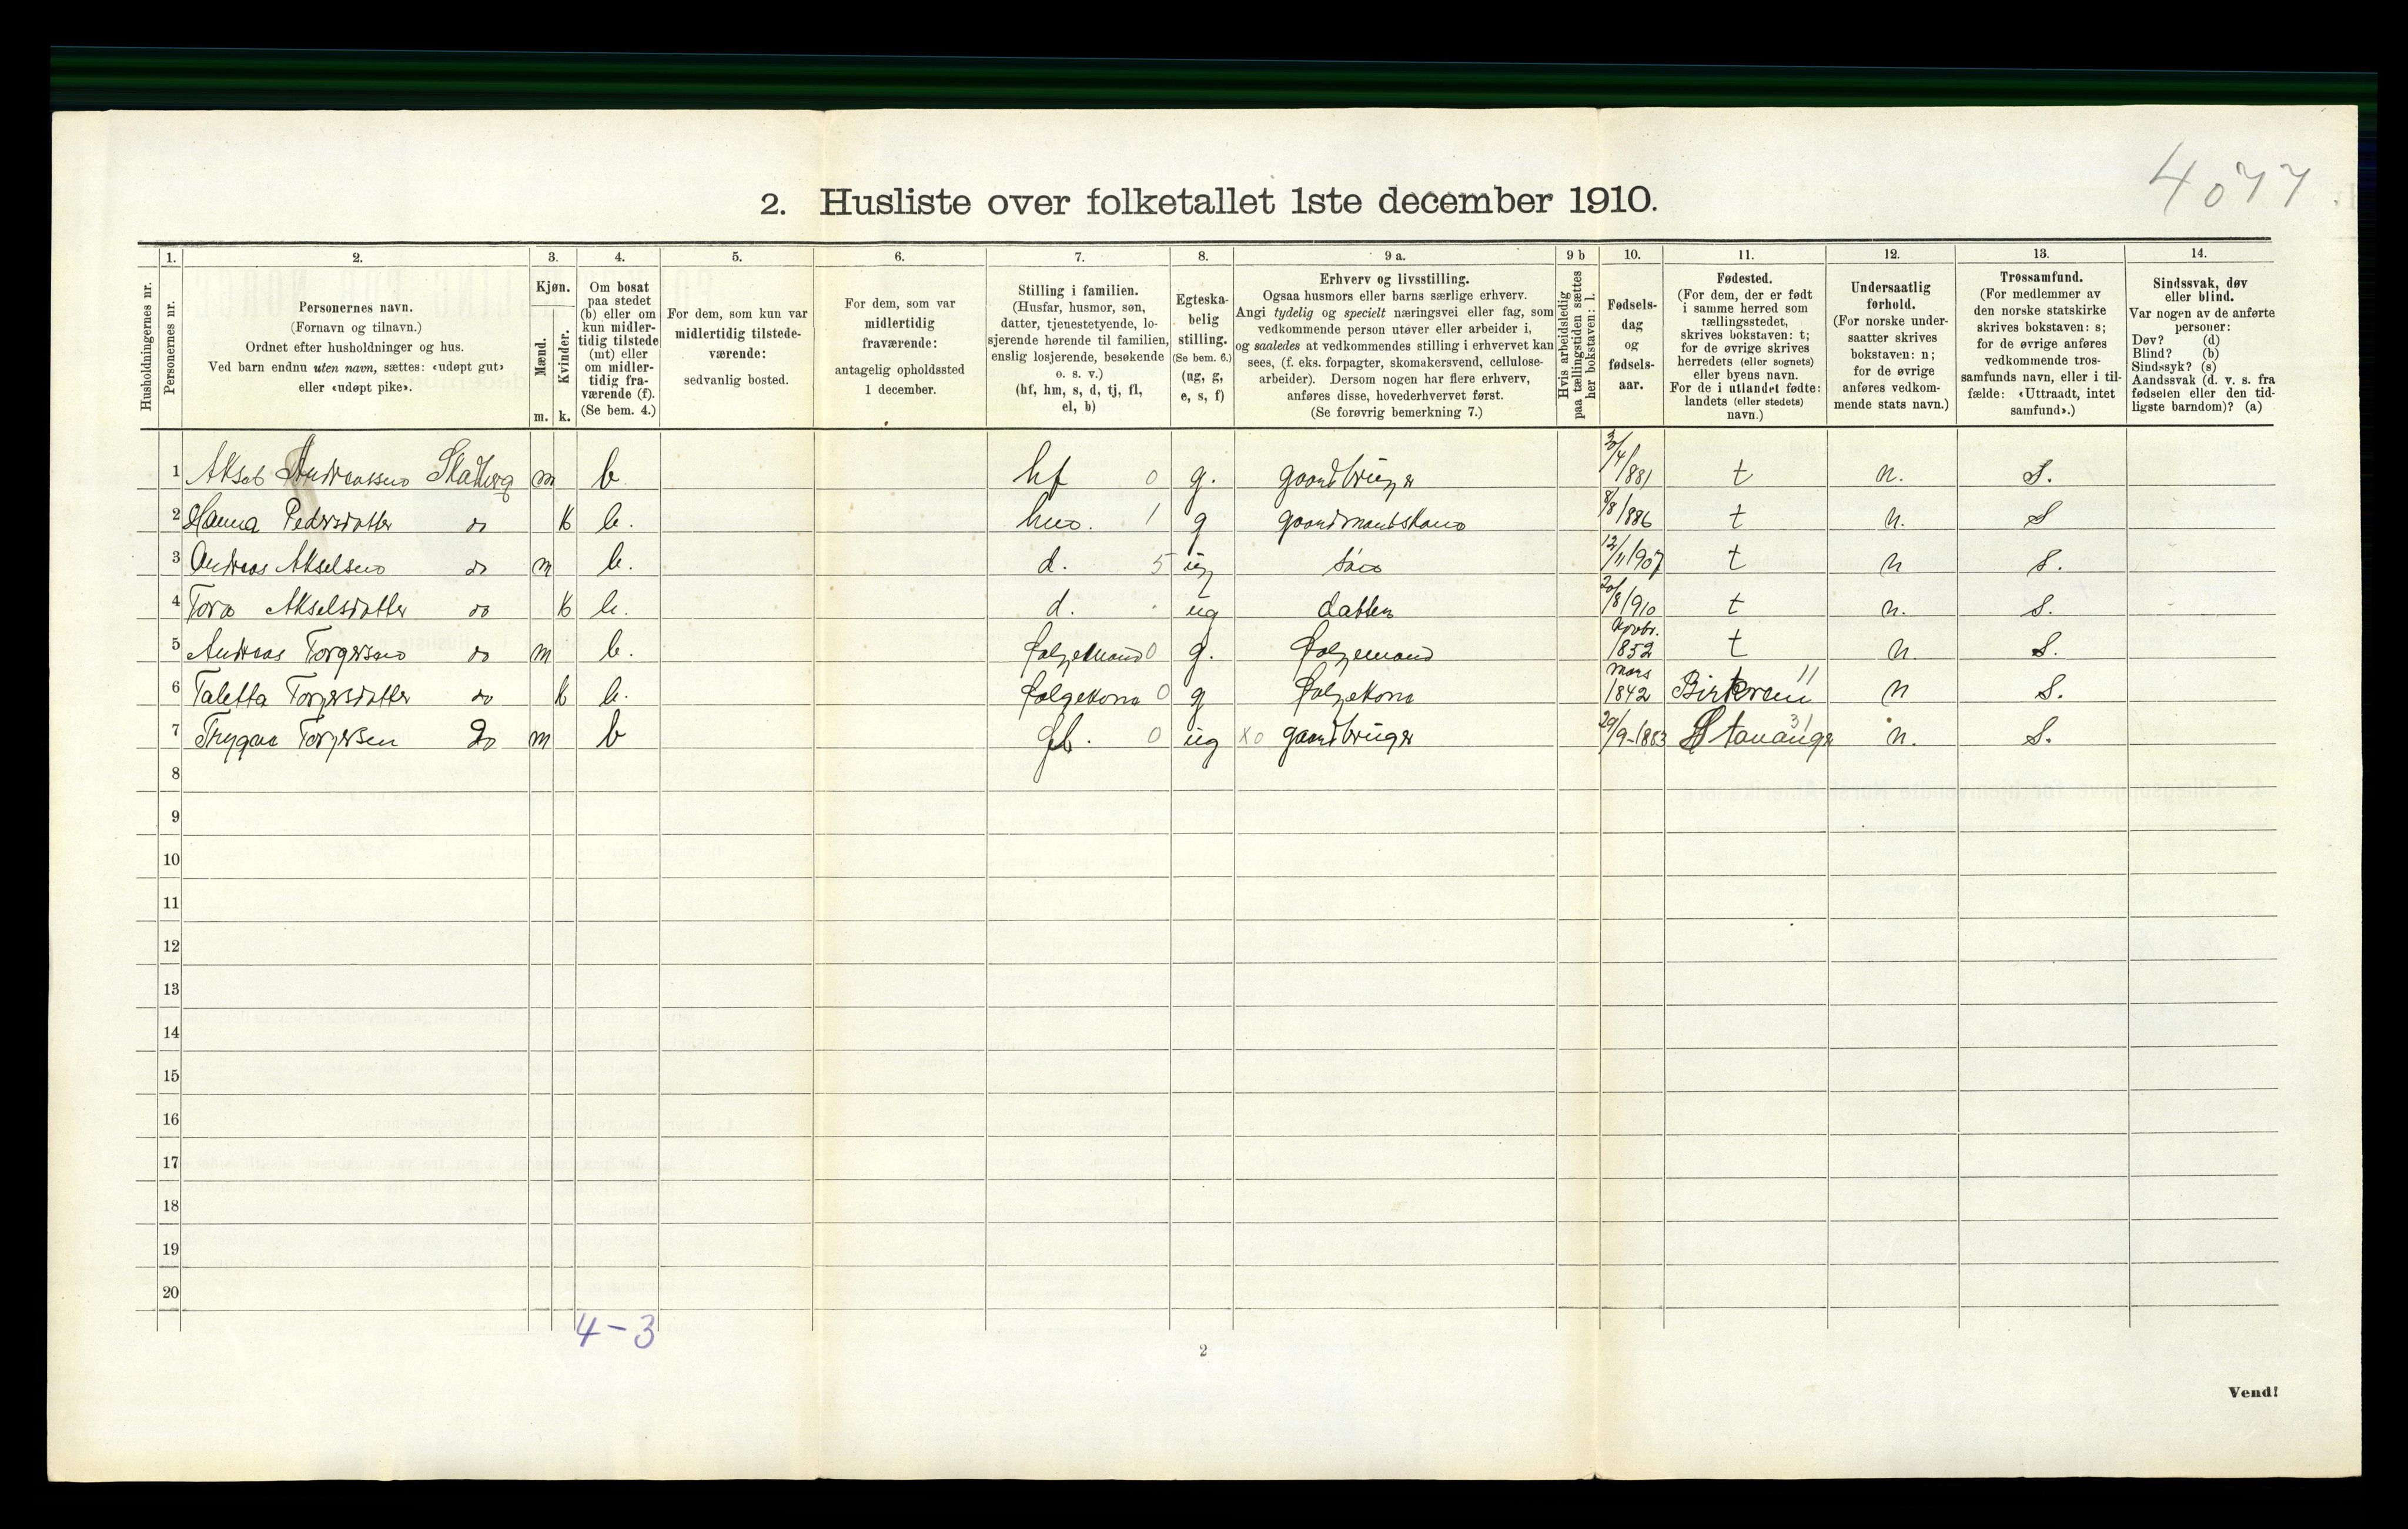 4077
2. Husliste over folketallet 1ste december 1910.
Husholdningernes nr.
1.
Personernes nr.
2.
Personernes navn.
(Fornavn og tilnavn.)
Ordnet efter husholdninger og hus.
Ved barn endnu uten navn, sættes: «udøpt gut»
eller «udøpt pike».
3.
Kjøn.
Mænd.
Kvinder.
m. k.
4.
Om bosat
paa stedet
(b) eller om
kun midler-
tidig tilstede
(mt) eller
om midler-
tidig fra-
værende (f).
(Se bem. 4.)
5.
For dem, som kun var
midlertidig tilstede-
værende:
sedvanlig bosted.
6.
For dem, som var
midlertidig
fraværende:
antagelig opholdssted
1 december.
7.
Stilling i familien.
(Husfar, husmor, søn,
datter, tjenestetyende, lo-
sjerende hørende til familien,
enslig losjerende, besøkende
o. s. v.)
(hf, hm, s, d, tj, fl,
el, b)
8.
Egteska-
belig
stilling.
(Se bem. 6.)
(ug, g,
e, s, f)
9 a.
Erhverv og livsstilling.
Ogsaa husmors eller barns særlige erhverv.
Angi tydelig og specielt næringsvei eller fag, som
vedkommende person utøver eller arbeider i,
og saaledes at vedkommendes stilling i erhvervet kan
sees, (f. eks. forpagter, skomakersvend, cellulose-
arbeider). Dersom nogen har flere erhverv,
anføres disse, hovederhvervet først.
(Se forøvrig bemerkning 7.)
9 b
Hvis arbeidsledig
paa tællingstiden sættes
her bokstaven: l.
10.
Fødsels-
dag
og
fødsels-
aar.
11.
Fødested.
(For dem, der er født
i samme herred som
tællingsstedet,
skrives bokstaven: t;
for de øvrige skrives
herredets (eller sognets)
eller byens navn.
For de i utlandet fødte:
landets (eller stedets)
navn.)
12.
Undersaatlig
forhold.
(For norske under-
saatter skrives
bokstaven: n;
for de øvrige
anføres vedkom-
mende stats navn.)
13.
Trossamfund.
(For medlemmer av
den norske statskirke
skrives bokstaven: s;
for de øvrige anføres
vedkommende tros-
samfunds navn, eller i til-
fælde: «Uttraadt, intet
samfund».)
14.
Sindssvak, døv
eller blind.
Var nogen av de anførte
personer:
Døv? (d)
Blind? (b)
Sindssyk? (s)
Aandssvak (d. v. s. fra
fødselen eller den tid-
ligste barndom)? (a)
1 Aksel Andreassen Stadberg m b. hf 0 g. gaardbruger 30/4 1881 t n. S.
2 Hanna Pedersdatter do k b. hm. 1 g gaardmandskone 8/8 1886 t n. S
3 Andreas Akselsen do m b. d. 5 ug søn 12/11 1907 t n S.
4 Tora Akselsdatter do k b. d. ug datter 20/8 1910 t n. S.
5 Andreas Torgersen do m b. følgemand 0 g. følgemand Novbr. 1852 t n. S.
6 Taletta Torgersdatter do k b. følgekona 0 g følgekona Mars 1842 Birkrem 11 n S.
7 Trygve Torgersen Do m b fl. 0 ug x0 gaardbruger 29/9-1883 Stavanger 31 n. S.
8
9
10
11
12
13
14
15
16
17
18
19
20
4-3
2
Vend!